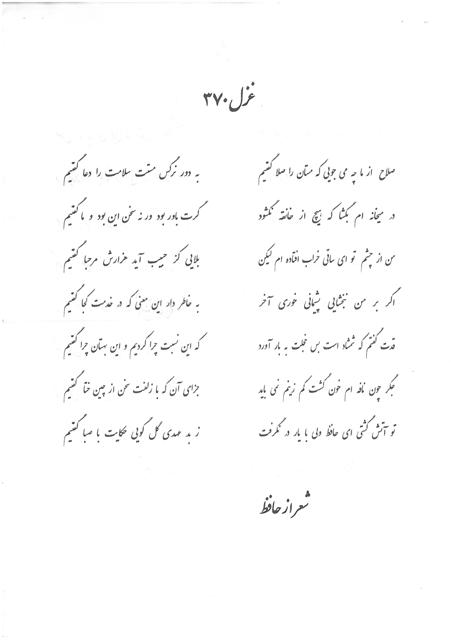 غزل ۳۷۰
صلاح از ما چه می جویی که مستان را صلا گفتیم به دور نرگس مستت سلامت را دعا گفتیم
در میخانه ام بگشا که هیچ از خانقه نگشود گرت باور بود ور نه سخن این بود و ما گفتیم
من از چشم تو ای ساقی خراب افتاده ام لیکن بلایی کز حبیب آید هزارش مرحبا گفتیم
اگر بر من نبخشایی پشیمانی خوری آخر به خاطر دار این معنی که در خدمت کجا گفتیم
قدت گفتم که شمشاد است بس خجلت به بار آورد که این نسبت چرا کردیم و این بهتان چرا گفتیم
جگر چون نافه ام خون گشت کم زینم نمی باید جزای آن که با زلفت سخن از چین ختا گفتیم
تو آتش گشتی ای حافظ ولی با یار در نگرفت ز بد عهدی گل گویی حکایت با صبا گفتیم
شعر از حافظ